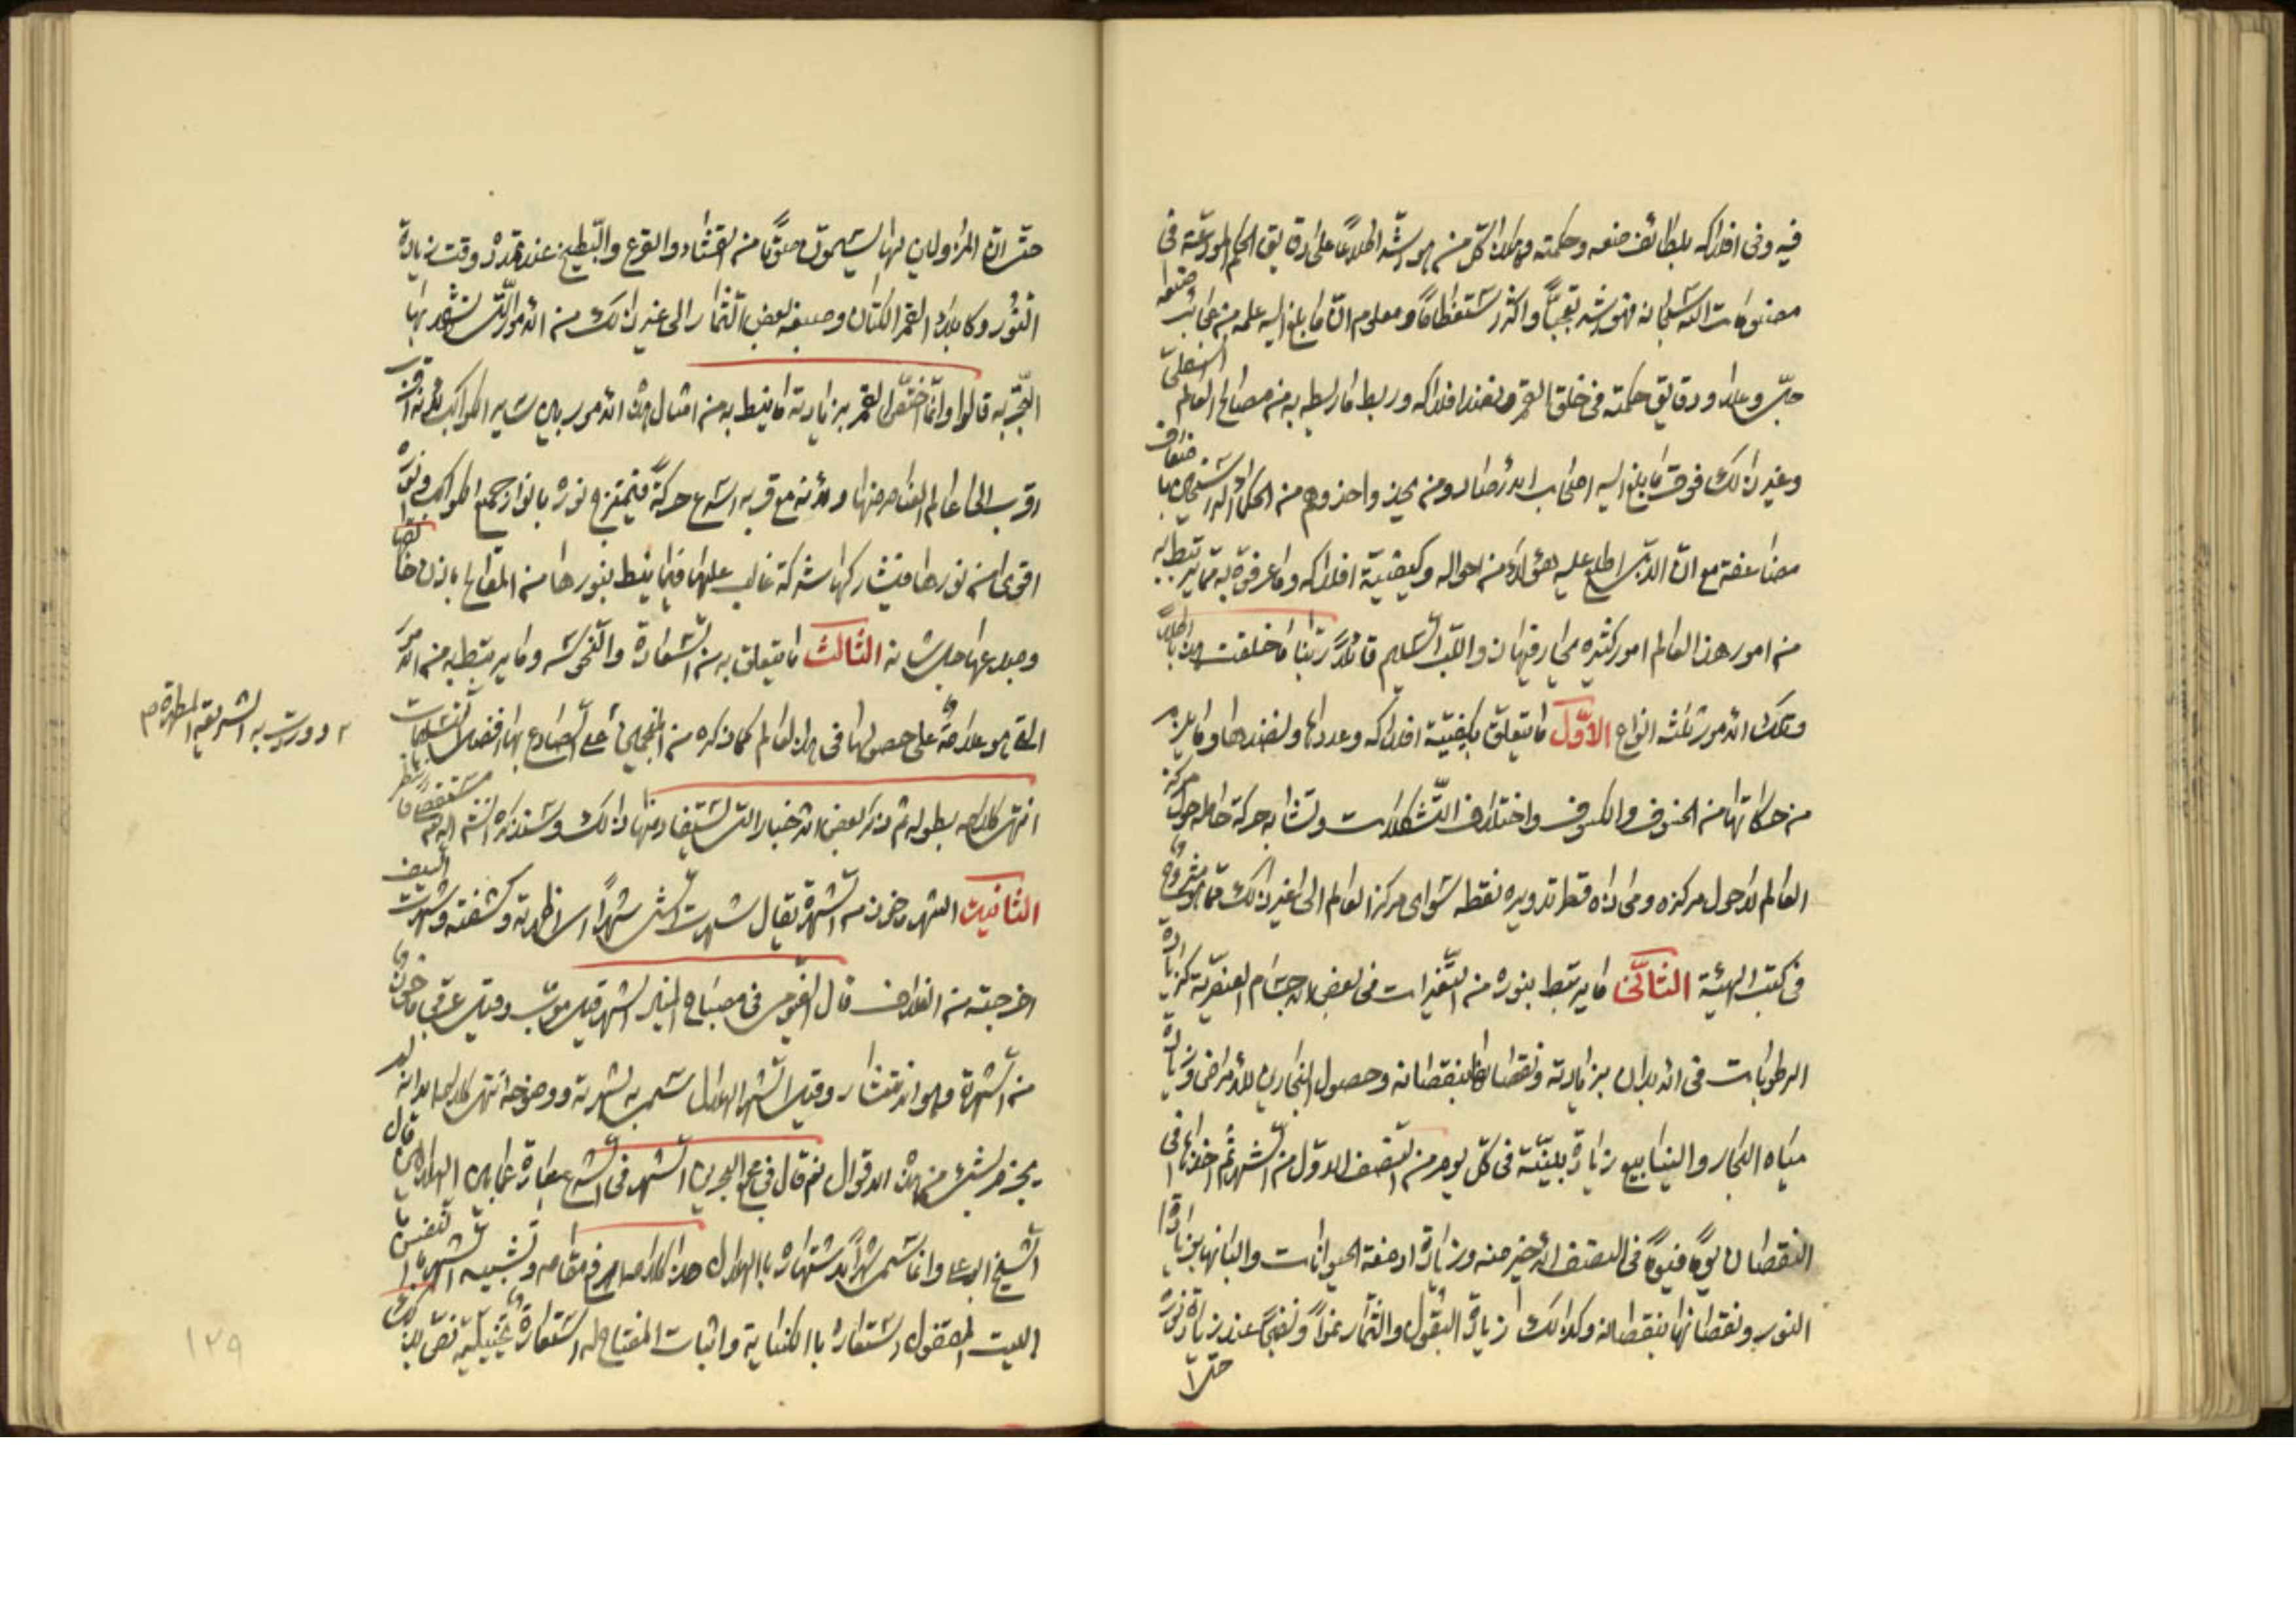 فيه وفي افلاكه بلطائف صنعه وحكمته وهكذا كل من هو اشد اطلاعا على دقايق الحكم المودعة في
مصنوعات الله سبحانه فهو اشد تعجبا واكثر استعظاما ومعلوم ان ما بلغ اليه علمه من عجائب صنعه
جل وعلا ودقايق حكمته في خلق القمر ونضد افلاكه وربط ما ربطه به من مصالح العالم السفلي
وغير ذلك فوق ما بلغ اليه اصحاب الارصاد ومن يحذو حذوهم من الحكماء الراسخين باضعاف
مضاعفة مع ان الذي اطلع عليه هؤلاء من احواله وكيفية افلاكه وما عرفوه مما يرتبط به
من امور هذا العالم امور كثيرة يحار فيها ذو اللب السليم قائلا ربنا ما خلقت هذا باطلا
وتلك الامور ثلثة انواع الاول ما يتعلق بكيفية افلاكه وعددها ونضدها وما يلزم
من حركاتها من الخسوف والكسوف واختلاف التشكلات وتشابه حركة حامله حول مركز
العالم لا حول مركزه ومحاذاة قطر تدويره نقطة سوى مركز العالم الى غير ذلك مما هو مشروح
في كتب الهيئة الثاني ما يرتبط بنوره من التغيرات في بعض الاجسام العنصرية كزيادة
الرطوبات في الابدان بزيادته ونقصانها بنقصانه وحصول البحارين للامراض وزيادة
مياه البحار والينابيع زيادة بينة في كل يوم من النصف الاول من الشهر ثم اخذها في
النقصان يوما فيوما في النصف الاخير منه وزيادة ادمغة الحيوانات والبانها بزيادة
النور ونقصانها بنقصانه وكذلك زيادة البقول والثمار نموا ونضجا عند زيادة نوره
حتى ان
حتى ان المزاولين لها يسمعون صوتا من القثاء والقرع والبطيخ عند تمدده وقت زيادة
النور وكابلاء القمر الكتان وصبغه بعض الثمار الى غير ذلك من الامور التي تشهد بها
التجربة قالوا وانما اختص القمر بزيادة ما نيط به من امثال هذه الامور بين ساير الكواكب لانه
اقرب الى عالم العناصر منها ولانه مع قربه اسرع حركة فيمتزج نوره بانوار جميع الكواكب ونوره
اقوى من نورها فيشاركها شركة غالب عليها فيما نيط بنورها من المصالح باذن خالقها
ومبدعها جل شانه الثالث ما يتعلق به من السعادة والنحوسة وما يرتبط به من الامور
التي هو علامة على حصولها في هذا العالم كما ذكره من المنجمين
٢ ووردت به الشريعة المطهرة م
انتهى كلامه بطوله ثم ذكر بعض الاخبار التي يستفاد منها ذلك وسنذكره
الثانية الشهر ماخوذ من الشهرة يقال شهرت الشيء شهرا اي اظهرته وكشفته وشهرت السيف
اخرجته من الغلاف قال الفيومي في مصباح المنير الشهر قيل معرب وقيل عربي ماخوذ
من الشهرة وهو الانتشار وقيل الشهر الهلال سمي به لشهرته ووضوحه انتهى كلامه
يجزم بشيء من هذه الاقوال ثم قال في مجمع البحرين الشهر في الشرع عبارة عما بين الهلالين قال
الشيخ ابو علي وانما سمي شهرا لاشتهاره بالهلال هذا الكلام وقع في مقامه وتشبيه الشهر
البيت المقفول استعارة بالكناية واثبات المفتاح له استعارة تخييلية
١٢٩